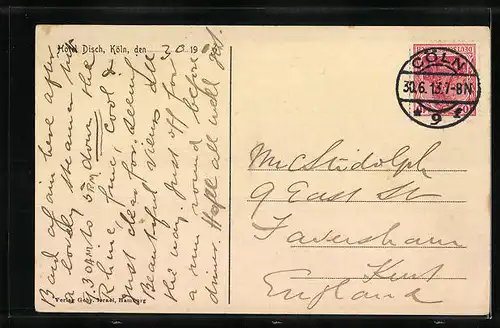 Hotel Disch, Köln, den 30 19
Bard & I am here after
a lovely steamer trip
.30 AM to 5 PM down the
Rhine fine, cool &
just clear for seeing
Beautiful views all
the way Just off for
a run round before
dinner. Hope all well yet.
Verlag Gebr. Israel, Hamburg
CÖLN
30.6.13.7-8N
9
Mr Studolph
9 East St
Faversham
Kent
England